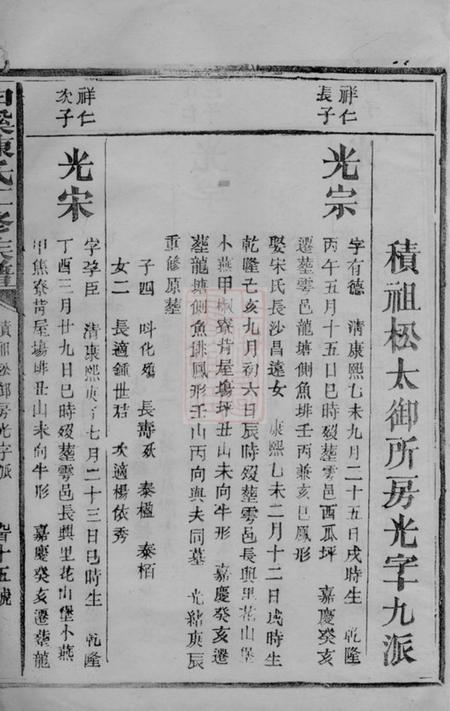 積祖松太御所房光字九派
祥仁
長子
光宗
字有德 清康熙乙未九月二十五日戌時生 乾隆
丙午五月十五日巳時歿塟雩邑西瓜坪 嘉慶癸亥
遷塟雩邑龍塘側魚排壬丙兼亥巳鳳形
娶宋氏長沙昌遠女 康熙乙未二月十二日戌時生
乾隆己亥九月初六日辰時歿塟雩邑長興里花山堡
小燕甲椒寮背屋塲坪丑山未向牛形 嘉慶癸亥遷
塟龍塘側魚排鳳形壬山丙向與夫同墓 光緒庚辰
重修原墓
子四 呌化 長壽 泰楹 泰栢
女二 長適鍾世桂 次適楊依秀
祥仁
次子
光宋
字宰臣 清康熙庚子七月二十三日巳時生 乾隆
丁酉三月廿九日巳時歿塟雩邑長興里花山堡小燕
甲焦寮背屋塲排丑山未向牛形 嘉慶癸亥遷塟龍
陳氏 修族譜
積祖松御房光字派
十五號